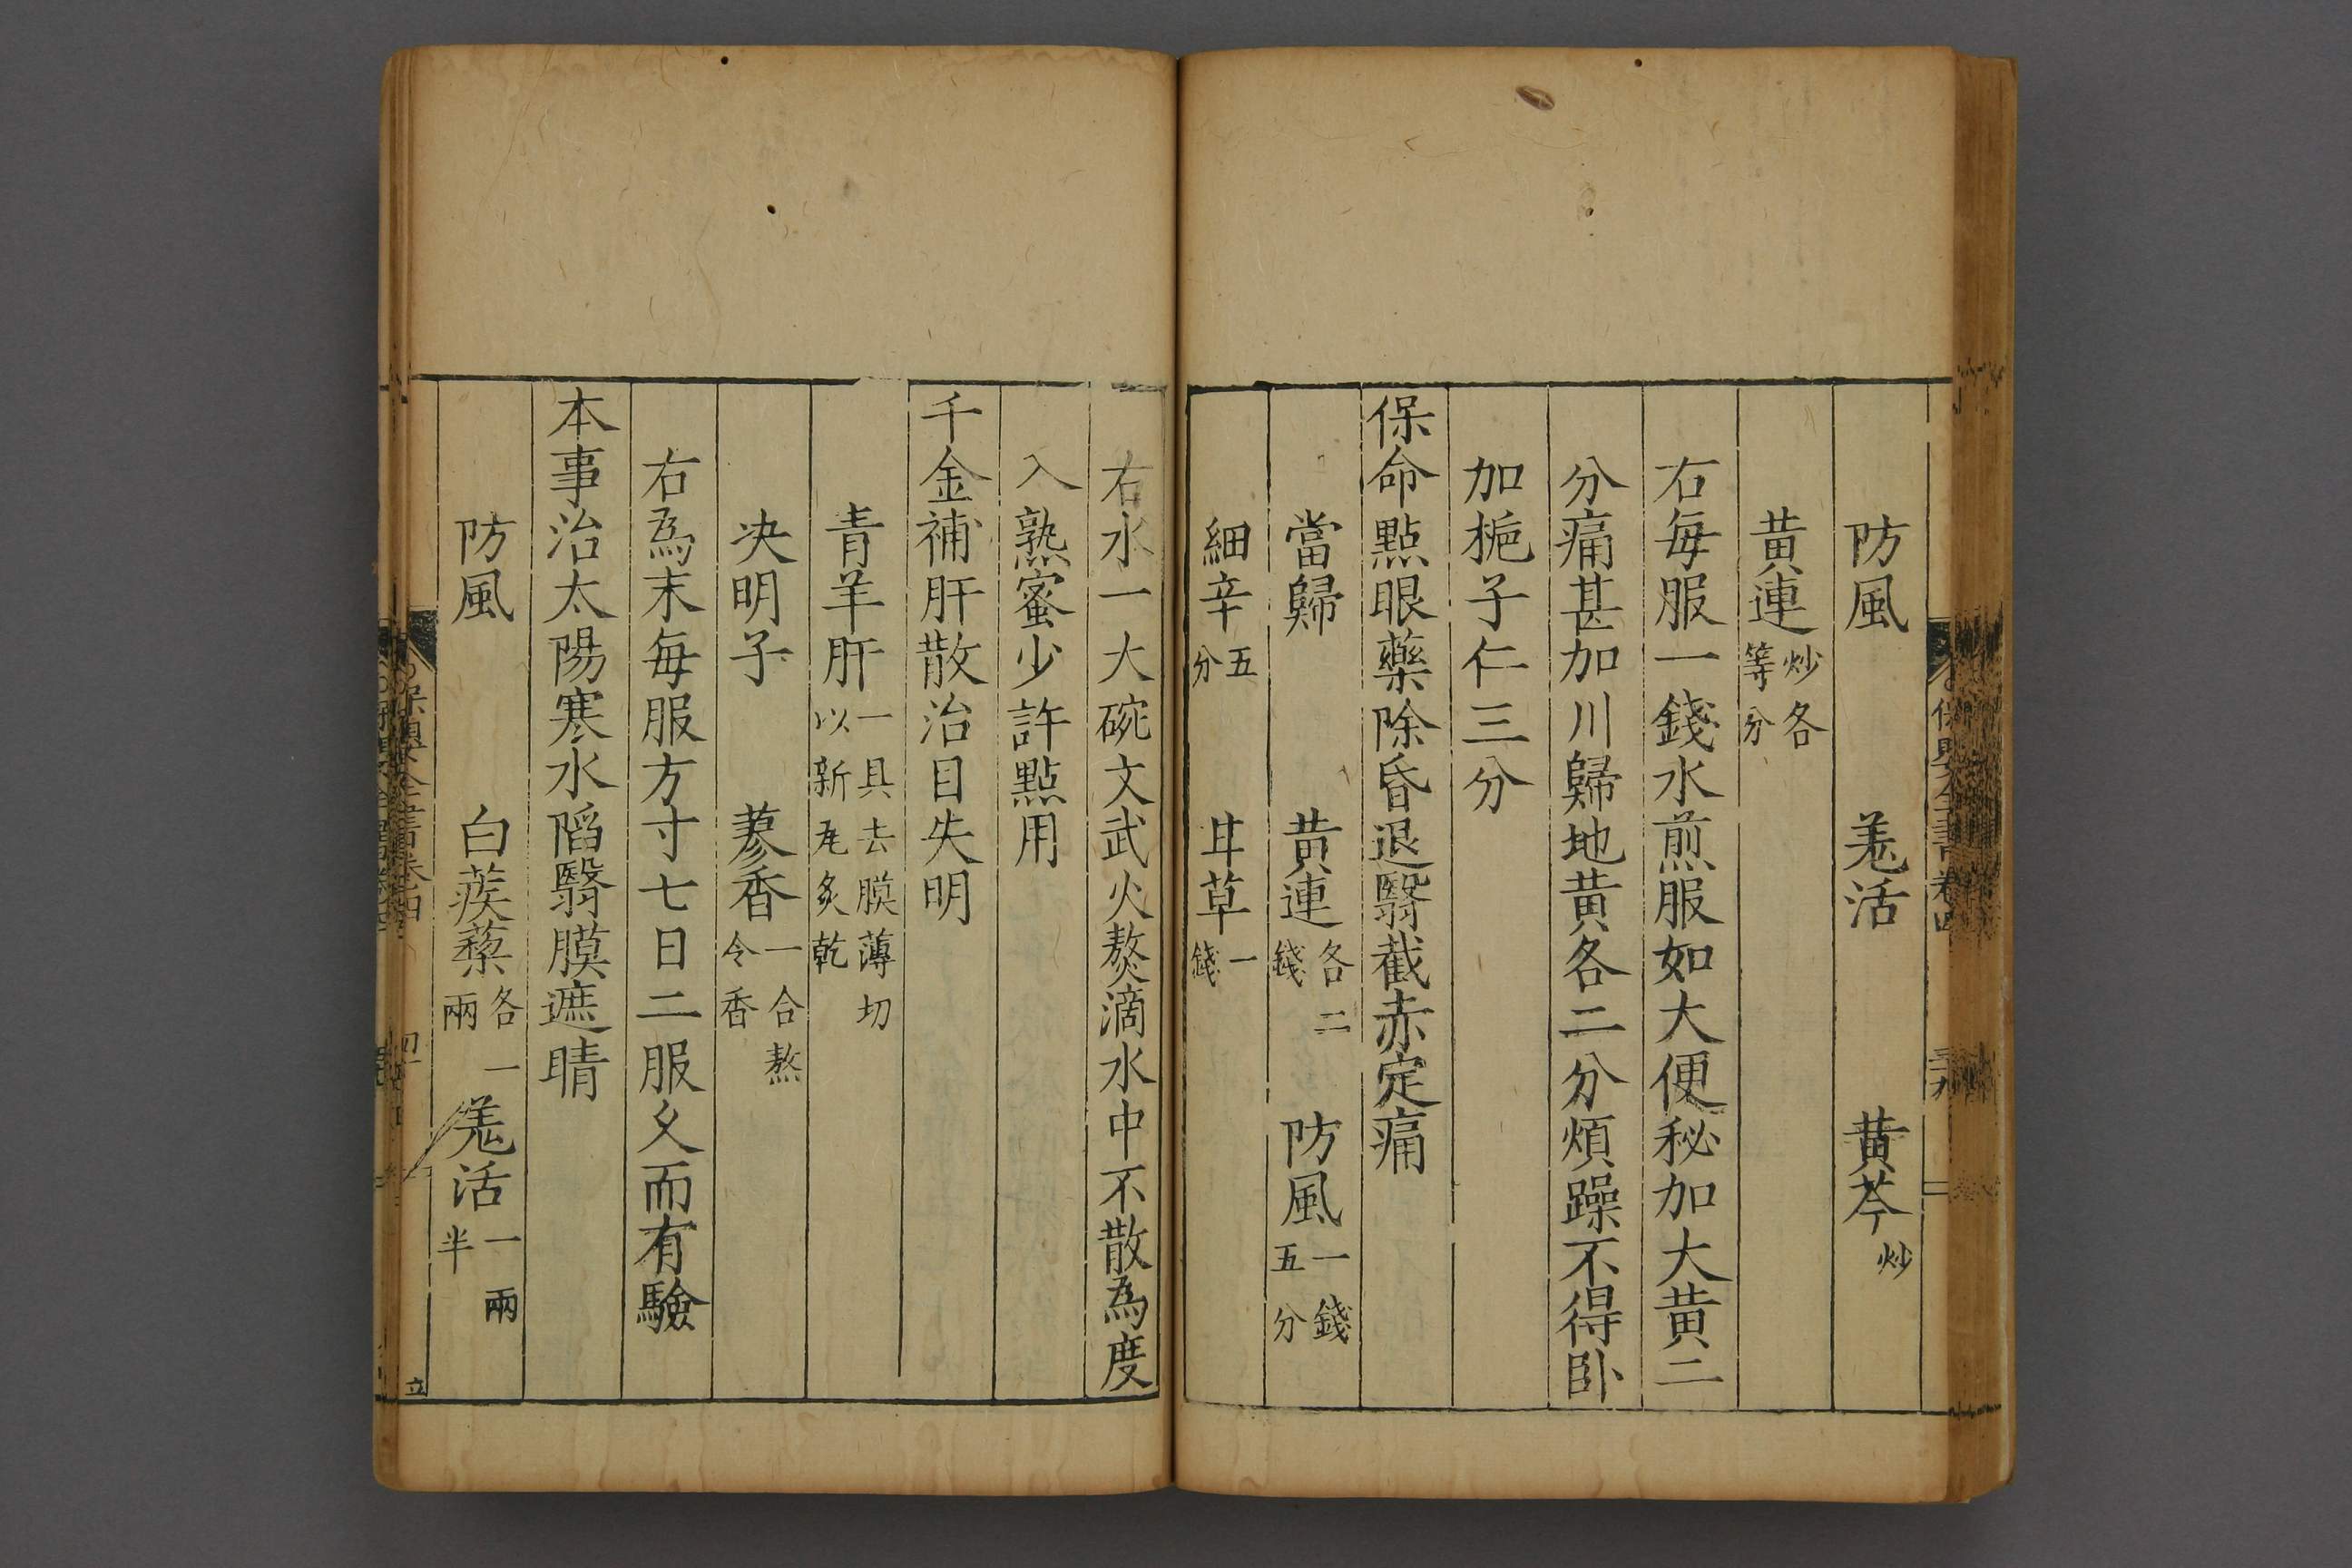 防風 羗活 黄芩炒
黄連炒各等分
右每服一錢水煎服如大便秘加大黄二
分痛甚加川歸地黄各二分煩躁不得卧
加梔子仁三分
保命點眼藥除昏退翳截赤定痛
當歸 黄連各二錢 防風一錢五分
細辛五分 甘草一錢
右水一大碗文武火熬滴水中不散為度
入熟蜜少許點用
千金補肝散治目失明
青羊肝一具去膜薄切以新瓦炙乾
决明子 蓼香一合熬令香
右為末每服方寸七日二服乆而有驗
本事治太陽寒水陷翳膜遮睛
防風 白蒺䔧各一兩 羗活一兩半
保嬰全書卷四